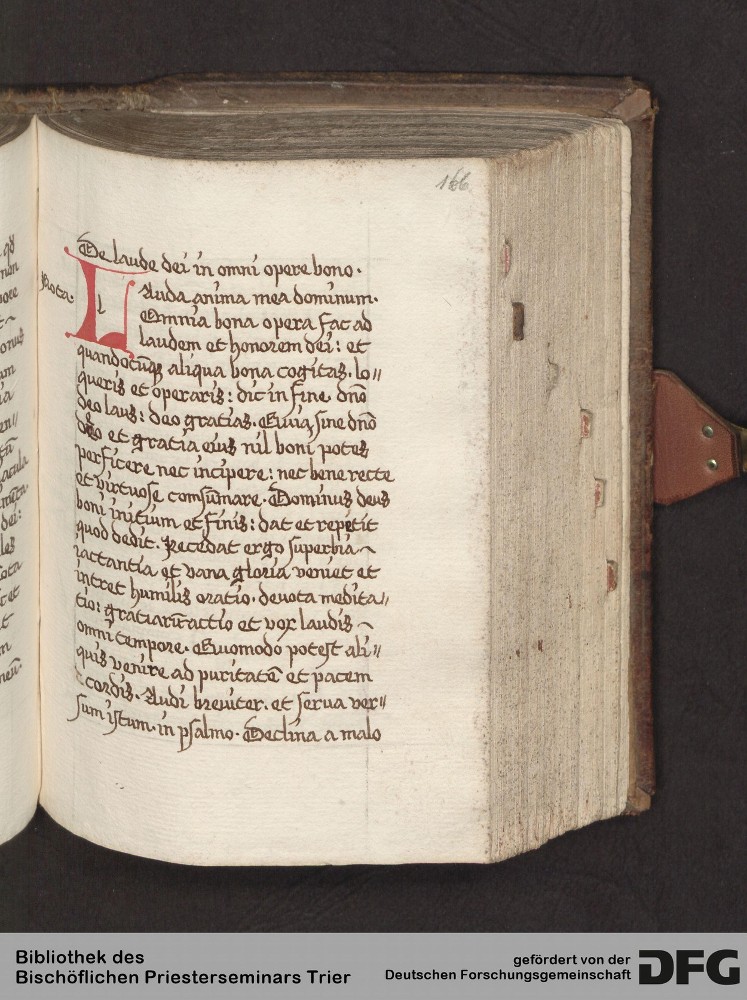 166
De laude dei in omni opere bono.
Nota.
LAuda anima mea dominum.
Omnia bona opera fac ad
laudem et honorem dei: et
quandocūqꝫ aliqua bona cogitas. lo〃
queris et operaris: dic in fine dn̄o
deo laus: deo gratias. Quia sine dn̄o
deo et gratia eius nil boni potes
perficere nec incipere: nec bene recte
et virtuose comsumare. Dominus deus
boni initium et finis: dat et repetit
quod dedit. Recedat ergo superbia
iactantia et vana gloria veniet et
intret humilis oratio. deuota medita〃
tio: gratiarū actio et vox laudis
omni tempore. Quomodo potest ali〃
quis venire ad puritatē et pacem
cordis. Audi breuiter. et serua ver〃
sum istum. in psalmo. Declina a malo
Bibliothek des
Bischöflichen Priesterseminars Trier
gefördert von der
Deutschen Forschungsgemeinschaft
DFG